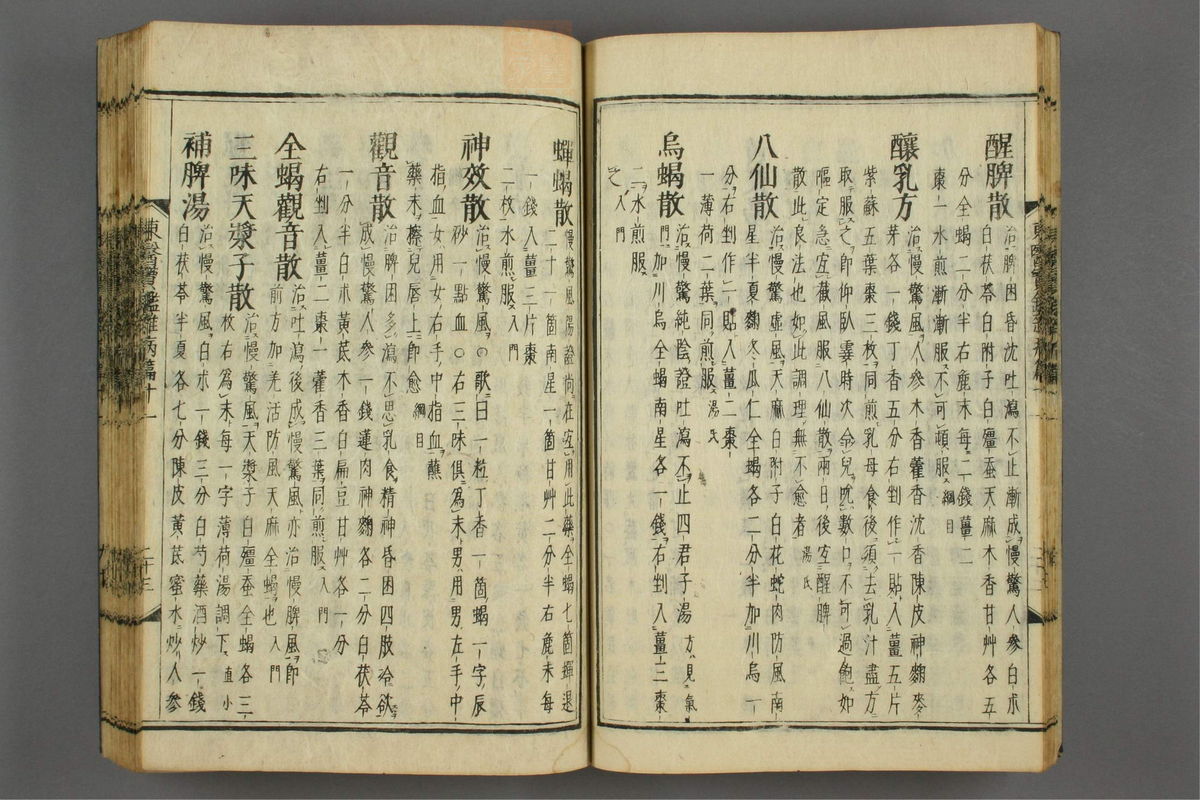 醒脾散治脾困昏沈吐瀉不止漸成慢驚人參白朮
白茯苓白附子白殭蚕天麻木香甘艸各五
分全蝎二分半右麁末每二錢薑二
棗一水煎漸漸服不可頓服綱目
釀乳方治慢驚風人參木香藿香沈香陳皮神麴麥
芽各一錢丁香五分右剉作一貼入薑五片
紫蘇五葉棗三枚同煎乳母食後須去乳汁盡方
取服之即仰臥霎時次令兒吮數口不可過飽如
嘔定急宜截風服八仙散兩日後宜醒脾
散此良法也如此調理無不愈者湯氏
八仙散治慢驚虛風天麻白附子白花蛇肉防風南
星半夏麴冬瓜仁全蝎各二分半加川烏一
分右剉作一貼入薑二棗
一薄荷二葉同煎服湯氏
烏蝎散治慢驚純陰證吐瀉不止四君子湯方見氣
門加川烏全蝎南星各一錢右剉入薑三棗
二水煎服
之入門
蟬蝎散慢驚風陽證尚在宜用此藥全蝎七箇蟬退
二十一箇南星一箇甘艸二分半右麁末每
一錢入薑三片棗
二枚水煎服入門
神效散治慢驚風○歌曰一粒丁香一箇蝎一字辰
砂一點血○右三味俱爲末男用男左手中
指血女用女右手中指血蘸
藥末擦兒唇上卽愈綱目
觀音散治脾困多瀉不思乳食精神昏困四肢冷欲
成慢驚人參一錢蓮肉神麴各二分白茯苓
一分半白朮黃芪木香白扁豆甘艸各一分
右剉入薑二棗一藿香三葉同煎服入門
全蝎觀音散治吐瀉後成慢驚風亦治慢脾風卽
前方加羌活防風天麻全蝎也入門
三味天漿子散治慢驚風天漿子白殭蚕全蝎各三
枚右爲末每一字薄荷湯調下直小
補脾湯治慢驚風白朮一錢三分白芍藥酒炒一錢
白茯苓半夏各七分陳皮黃芪蜜水炒人參
東醫寶鑑雜病篇十一
二十三